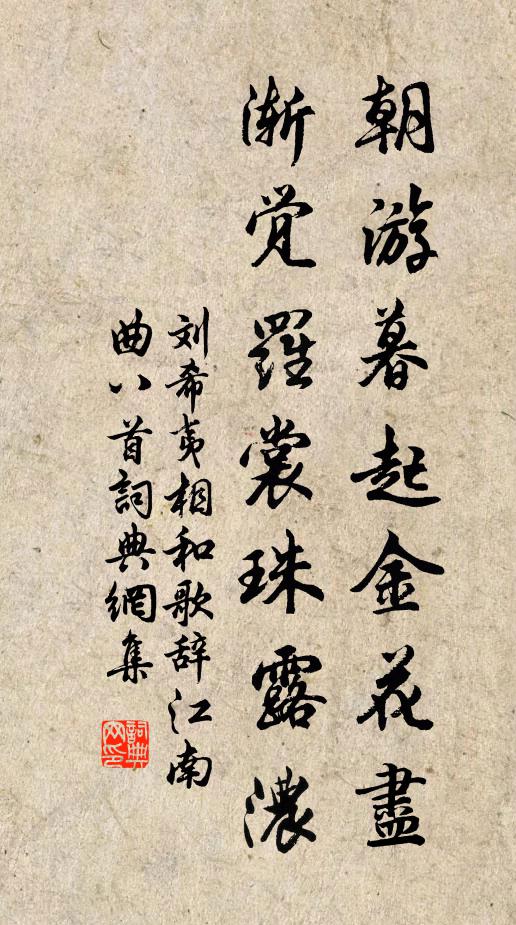 朝游暮起金花盡
漸觉羅裳珠露濃
刘希夷相和歌辞江南
曲八首詞典網集
詞典
网印